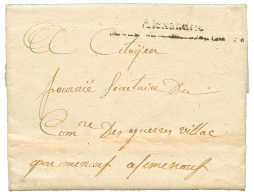 Alexandrie
Au Citoyen
fournié Secretaire Du
Comre Des guerres villac
par menouf a Semenouf